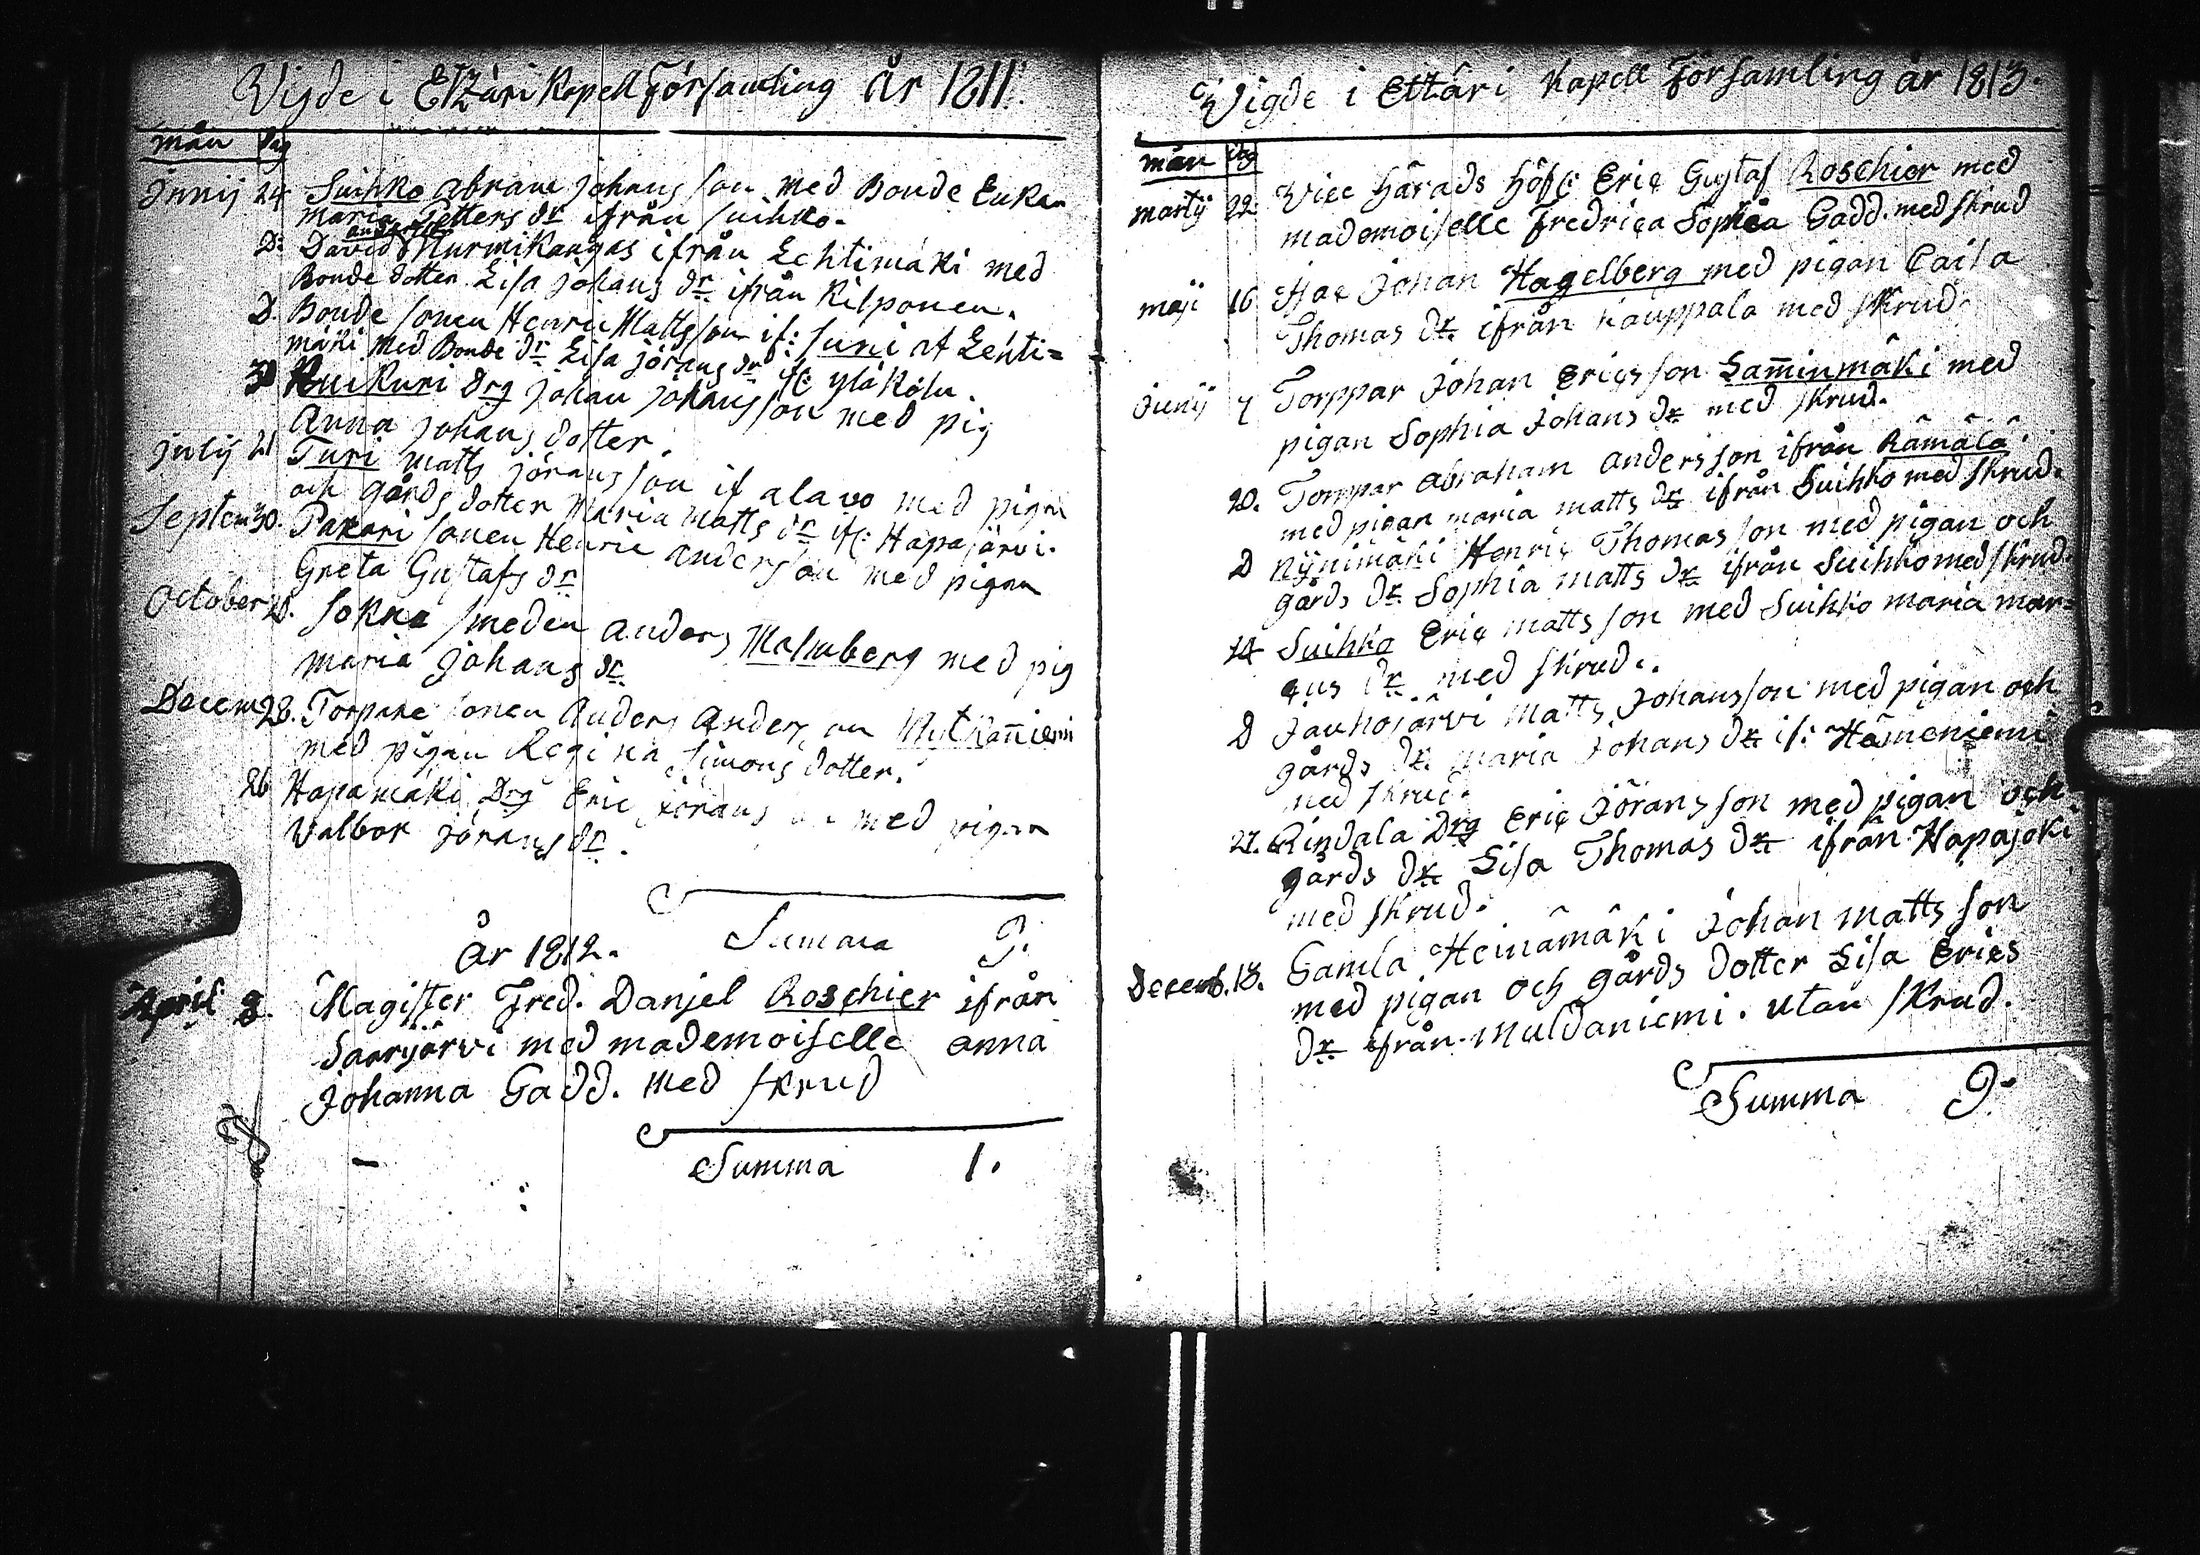 Vigde i Etzäri Kapell Församling År 1811.
mån dag
Junij 24 Suihko Abram Johans son med Bonde Enkan
maria Petters dr ifrån Suihko.
D: David Anderss. Nurmikangas ifrån Lehtimäki med
Bonde dotter Lisa Johans dr ifrån Kilponen.
D. Bonde sonen Henric Matts son if: Suni af Lehti=
mäki med Bonde dr Lisa Jörans dr if: yläkölu.
30 Kuikuri drg Johan Johans son med pig
Anna Johans dotter.
Julij 21 Turi matts jörans son if alavo med pigan
och gårds dotter Maria Matts dr if: Hapajärvi.
Septem 30. Pakari sonen Henric anders son med pigan
Greta Gustafs dr
October 28. Sokne smeden anders Malmberg med pig
Maria Johans dr.
Decem 28. Torpare sonen Anders Anders son
med pigan Regina Simons dotter.
26 Hapamäki Drg Eric jörans son med pigan
Valbor jörans dr.
Summa 9.
År 1812.
April 8. Magister Fred. Danjel Roschier ifrån
Saarijärvi med mademoiselle anna
Johanna Gadd. med skrud
Summa 1.
Vigde i Ettäri Kapell Församling år 1813.
mån dag
martij 22 Vice Härads Höfd: Eric Gustaf Roschier med
mademoiselle Fredrica Sophia Gadd. med skrud
maji 16 Johan Hagelberg med pigan Caisa
Thomas dr. ifrån Kauppala med skrud.
Junij 4 Torppar Johan Erics son Lam̅inmäki med
pigan Sophia Johans dr med skrud.
20. Torppar Abraham anders son ifrån Rämälä.
med pigan maria matts dr ifrån Suihko med skrud.
D Nynimäki Henric Thomas son med pigan och
gårds dr. Sophia matts dr ifrån Suihko med skrud.
24 Suihko Eric matts son med Suihko maria mar=
cus dr med skrud.
D Jauhojärvi Matts Johans son med pigan och
gårds dr. maria Johans dr if: Hämeniemi
med skrud.
27. Rindala Drg Eric Jörans son med pigan och
gårds dr Lisa Thomas dr ifrån Hapajoki
med skrud.
Decemb. 18. Gamla Heinämäki Johan matts son
med pigan och gårds dotter Lisa Erics
dr ifrån Muldaniemi. utan skrud.
Summa 9.